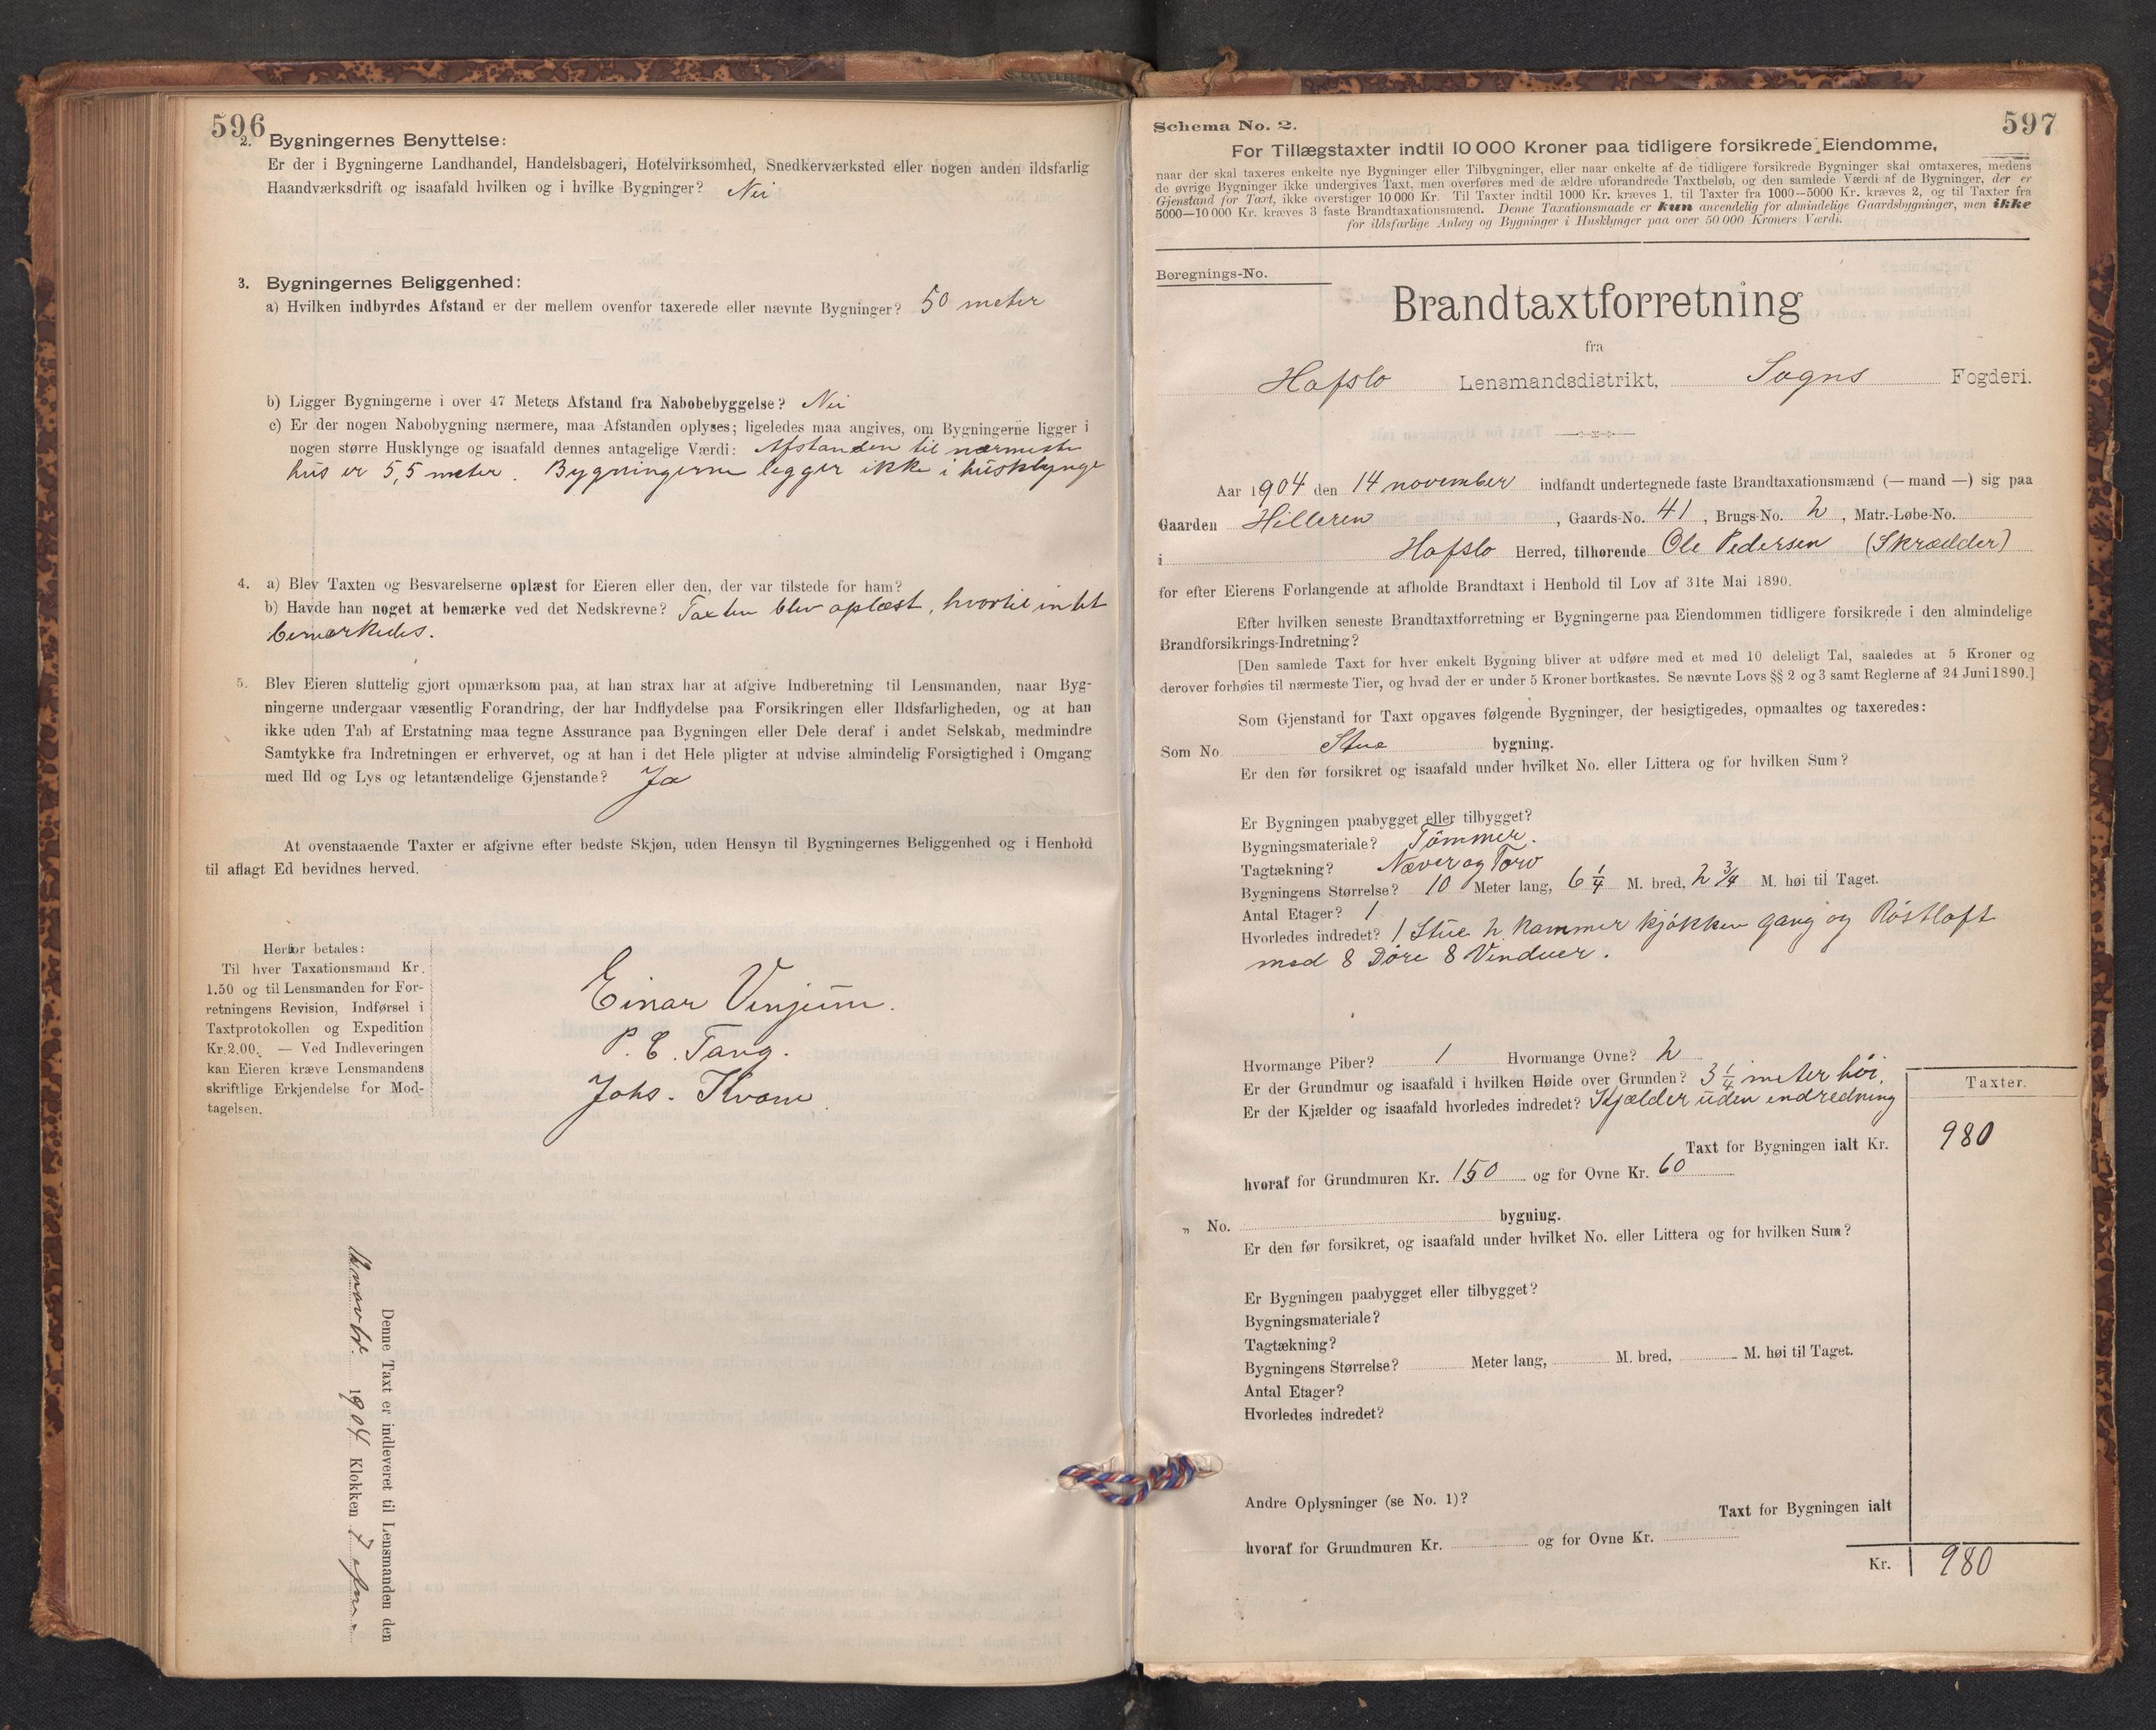 596
2. Bygningernes Benyttelse:
Er der i Bygningerne Landhandel, Handelsbageri, Hotelvirksomhed, Snedkerværksted eller nogen anden ildsfarlig
Haandværksdrift og isaafald hvilken og i hvilke Bygninger? Nei
3. Bygningernes Beliggenhed:
a) Hvilken indbyrdes Afstand er der mellem ovenfor taxerede eller nævnte Bygninger? 50 meter
b) Ligger Bygningerne i over 47 Meters Afstand fra Nabobebyggelse? Nei
c) Er der nogen Nabobygning nærmere, maa Afstanden oplyses; ligeledes maa angives, om Bygningerne ligger i
nogen større Husklynge og isaafald dennes antagelige Værdi: Afstanden til nærmeste
hus er 5,5 meter. Bygningerne legger ikke i husklynge
4. a) Blev Taxten og Besvarelserne oplæst for Eieren eller den, der var tilstede for ham?
b) Havde han noget at bemærke ved det Nedskrevne? Taxten blev oplæst, hvortil intet
bemærkedes.
5. Blev Eieren sluttelig gjort opmærksom paa, at han strax har at afgive Indberetning til Lensmanden, naar Byg-
ningerne undergaar væsentlig Forandring, der har Indflydelse paa Forsikringen eller Ildsfarligheden, og at han
ikke uden Tab af Erstatning maa tegne Assurance paa Bygningen eller Dele deraf i andet Selskab, medmindre
Samtykke fra Indretningen er erhvervet, og at han i det Hele pligter at udvise almindelig Forsigtighed i Omgang
med Ild og Lys og letantændelige Gjenstande? Ja
At ovenstaaende Taxter er afgivne efter bedste Skjøn, uden Hensyn til Bygningernes Beliggenhed og i Henhold
til aflagt Ed bevidnes herved.
Herfor betales:
Til hver Taxationsmand Kr.
1.50 og til Lensmanden for For-
retningens Revision, Indførsel i
Taxtprotokollen og Expedition
Kr. 2.00. — Ved Indleveringen
kan Eieren kræve Lensmandens
skriftlige Erkjendelse for Mod-
tagelsen.
Einar Vinjum.
P. E. Tang.
Johs. Kvam
Denne Taxt er indleveret til Lensmanden den
1904 Klokken 7
597
Schema No. 2.
For Tillægstaxter indtil 10 000 Kroner paa tidligere forsikrede Eiendomme,
naar der skal taxeres enkelte nye Bygninger eller Tilbygninger, eller naar enkelte af de tidligere forsikrede Bygninger skal omtaxeres, medens
de øvrige Bygninger ikke undergives Taxt, men overføres med de ældre uforandrede Taxtbeløb, og den samlede Værdi af de Bygninger, der er
Gjenstand for Taxt, ikke overstiger 10 000 Kr. Til Taxter indtil 1000 Kr. kræves 1, til Taxter fra 1000—5000 Kr. kræves 2, og til Taxter fra
5000—10 000 Kr. kræves 3 faste Brandtaxationsmænd. Denne Taxationsmaade er kun anvendelig for almindelige Gaardsbygninger, men ikke
for ildsfarlige Anlæg og Bygninger i Husklynger paa over 50 000 Kroners Værdi.
Beregnings-No.
Brandtaxtforretning
fra
Hafslo Lensmandsdistrikt, Sogns Fogderi.
Aar 1904 den 14 november indfandt undertegnede faste Brandtaxationsmænd (— mand —) sig paa
Gaarden Hilleren, Gaards-No. 41, Brugs-No. 2, Matr.-Løbe-No.
i Hafslo Herred, tilhørende Ole Pedersen (Skrædder)
for efter Eierens Forlangende at afholde Brandtaxt i Henhold til Lov af 31te Mai 1890.
Efter hvilken seneste Brandtaxtforretning er Bygningerne paa Eiendommen tidligere forsikrede i den almindelige
Brandforsikrings-Indretning?
[Den samlede Taxt for hver enkelt Bygning bliver at udføre med et med 10 deleligt Tal, saaledes at 5 Kroner og
derover forhøies til nærmeste Tier, og hvad der er under 5 Kroner bortkastes. Se nævnte Lovs §§ 2 og 3 samt Reglerne af 24 Juni 1890.]
Som Gjenstand for Taxt opgaves følgende Bygninger, der besigtigedes, opmaaltes og taxeredes:
Som No. Stue bygning.
Er den før forsikret og isaafald under hvilket No. eller Littera og for hvilken Sum?
Er Bygningen paabygget eller tilbygget?
Bygningsmateriale? Tömmer.
Tagtækning? Næver og Torv
Bygningens Størrelse? 10 Meter lang, 6 1/4 M. bred, 2 3/4 M. høi til Taget.
Antal Etager? 1
Hvorledes indredet? 1 Stue 2 kammer kjökken gang og Röstloft
med 8 Döre 8 Vinduer.
Hvormange Piber? 1 Hvormange Ovne? 2
Er der Grundmur og isaafald i hvilken Høide over Grunden? 3 1/4 meter höi.
Er der Kjælder og isaafald hvorledes indredet? Kjælder uden endredning
Taxter.
Taxt for Bygningen ialt Kr. 980
hvoraf for Grundmuren Kr. 150 og for Ovne Kr. 60
„ No. bygning.
Er den før forsikret, og isaafald under hvilket No. eller Littera og for hvilken Sum?
Er Bygningen paabygget eller tilbygget?
Bygningsmateriale?
Tagtækning?
Bygningens Størrelse? Meter lang, M. bred, M. høi til Taget.
Antal Etager?
Hvorledes indredet?
Andre Oplysninger (se No. 1)?
Taxt for Bygningen ialt
hvoraf for Grundmuren Kr. og for Ovne Kr.
Kr. 980